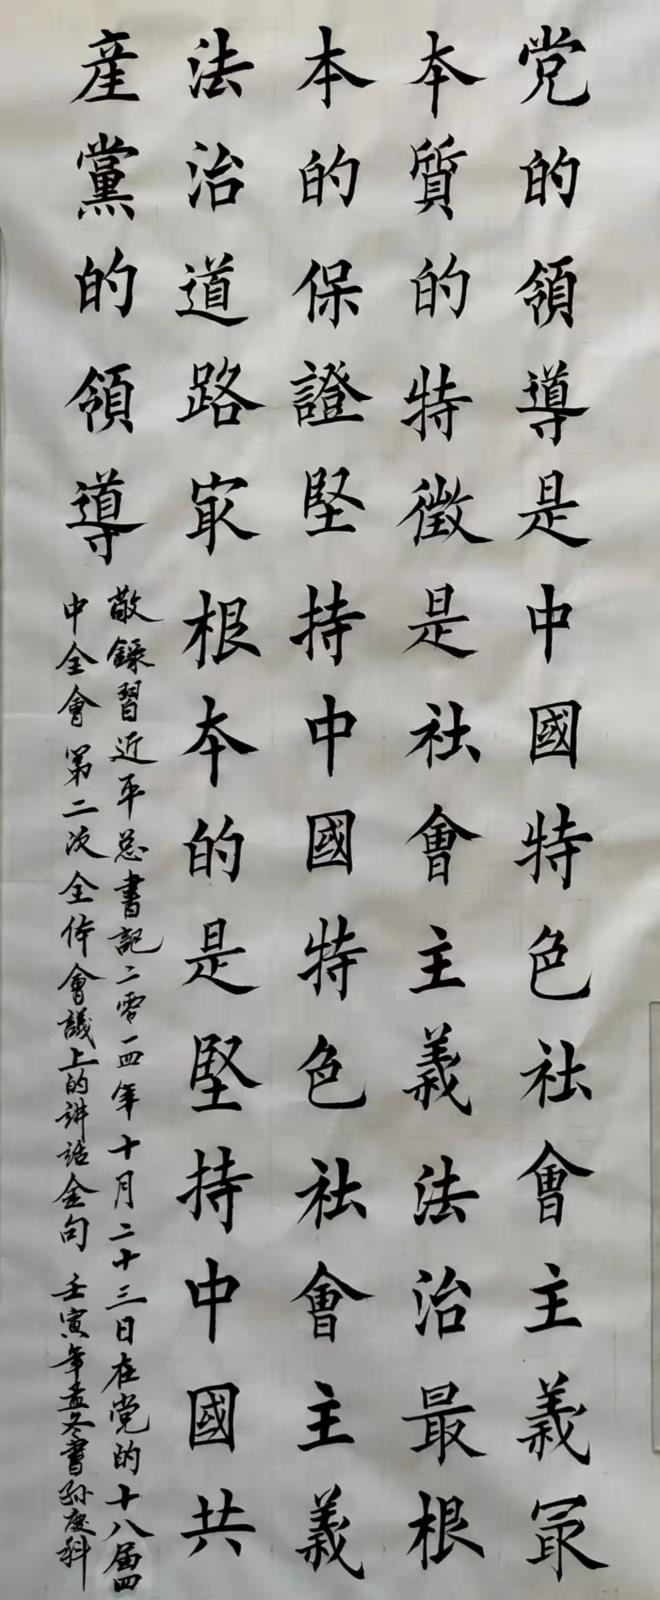 党的領導是中國特色社會主義冣
本質的特徵是社會主義法治最根
本的保證堅持中國特色社會主義
法治道路冣根本的是堅持中國共
産黨的領導
敬錄習近平总書記二零一四年十月二十三日在党的十八届四
中全會第二次全体會議上的講話金句 壬寅年孟冬書孙庆科